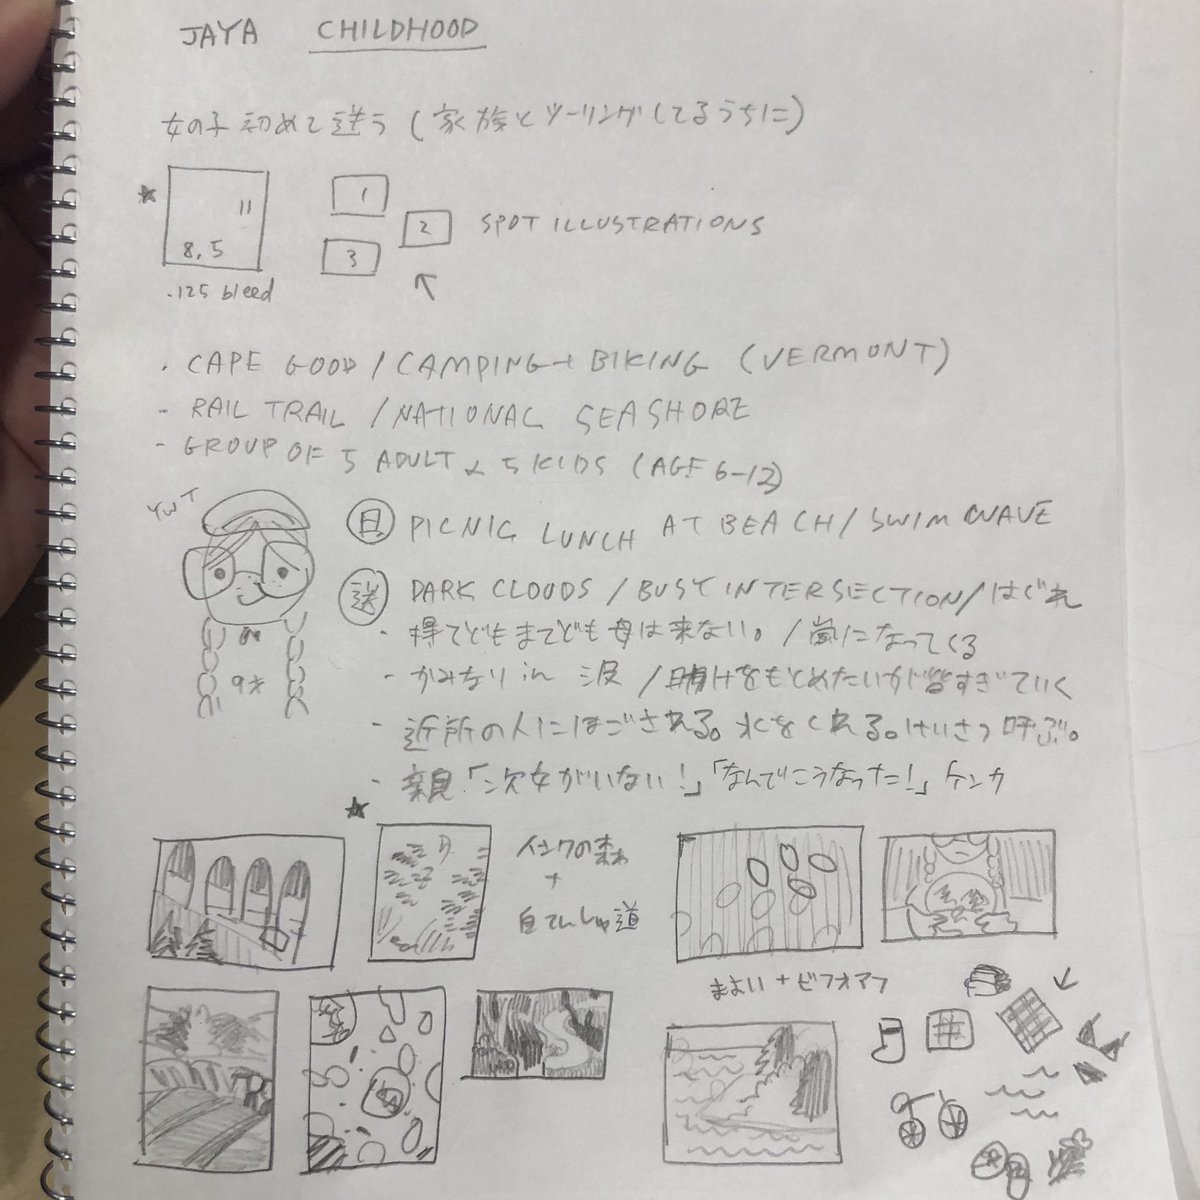 JAYA CHILDHOOD
女の子初めて迷う(家族とツーリングしてるうちに)
11
8.5
.125 bleed
1
2
3
SPOT ILLUSTRATIONS
· CAPE GOOD / CAMPING + BIKING (VERMONT)
- RAIL TRAIL / NATIONAL SEASHORE
- GROUP OF 5 ADULT & 5 KIDS (AGE 6-12)
9才
PICNIC LUNCH AT BEACH / SWIM WAVE
迷 DARK CLOUDS / BUSY INTERSECTION / はぐれ
- 待てどもまてども母は来ない。/嵐になってくる
- かみなり in 涙 / 助けをもとめたいが皆すぎていく
- 近所の人にほごされる。水をくれる。けいさつ呼ぶ。
- 親!「次女がいない!」「なんでこうなった!」ケンカ
インクの森
+
自てんしゃ道
まよい+ビフォアフ